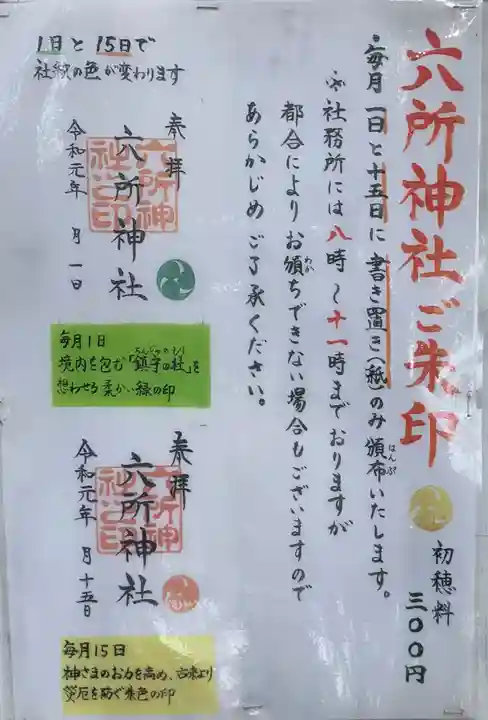 六所神社ご朱印
初穂料
三〇〇円
・毎月一日と十五日に書き置き(紙)のみ頒布いたします。
はんぷ
※社務所には八時~十一時までおりますが
都合によりお頒ちできない場合もございますので
わか
あらかじめご了承ください。
1日と15日で
社紋の色が変わります
奉拝
六所神社
六所神社之印
令和元年 月一日
毎月1日
境内を包む「鎮守の杜」を
ちんじゅのもり
想わせる柔かい緑の印
奉拝
六所神社
六所神社之印
令和元年 月十五日
毎月15日
神さまのお力を高め、古来より
災厄を防ぐ朱色の印